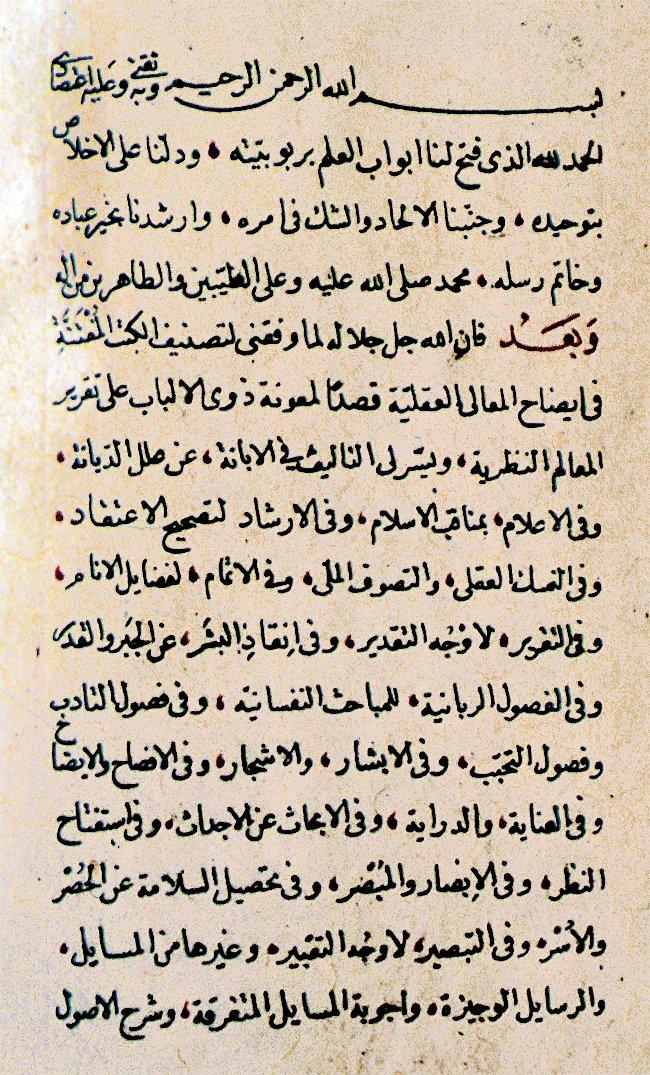 بسم الله الرحمن الرحيم وبه ثقتي وعليه اعتمادي
الحمد لله الذى فتح لنا ابواب العلم بربوبيّته ، ودلّنا على الاخلاص
بتوحيده ، وجنّبنا الالحاد والشك فى امره ، وارشدنا بخير عباده
وخاتم رسله ، محمد صلى الله عليه وعلى الطيّبين والطاهرين من اله
وَبَعْدُ فان الله جل جلاله لما وفقنى لتصنيف الكتب المُفْتَنَّةِ
فى ايضاح المعانى العقليّة قصدًا لمعونة ذوى الالباب على تقرير
المعالم النظرية ، ويسّر لى التاليف فى الابانة ، عن علل الدّيانة ،
وفى الاعلام ، بمناقب الاسلام ، وفى الارشاد لتصحيح الاعتقاد ،
وفى النسك العقلى ، والتصوف الملّى ، وفى الاتمام ، لفضايل الانام ،
وفى التقرير ، لاوْجُه التقدير ، وفى اِنقاذِ البشَر ، عن الجَبْر والقدَر
وفى الفصول الربانية ، للمباحث النفسانيّة ، وفى فصول التادب
وفصول التحبّب ، وفى الابشار ، والاشجار ، وفى الافصاح والايضاح
وفى العناية ، والدراية ، وفى الابحاث عن الاحداث ، وفى استفتاح
النظر ، وفى الاِبصار والمُبْصَر ، وفى تحصيل السلامة عن الحُصْر
والأُسْر ، وفى التبصير ، لاوجُه التعبير ، وغيرها من المسايل ،
والرسايل الوجيزة ، واجوبة المسايل المتفرقة ، وشرح الاصول